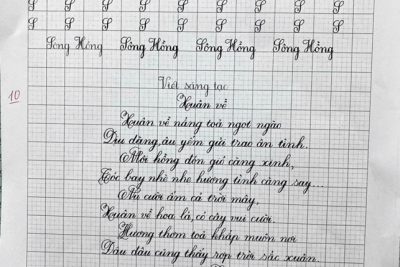 S S S S S S S S S
S S S S S S S S S
Sông Hồng Sông Hồng Sông Hồng Sông Hồng
10
Viết sáng tạo
Xuân về
Xuân về nắng toả ngọt ngào
Dịu dàng, âu yếm gửi trao ân tình.
Môi hồng đón gió càng xinh,
Tóc bay nhè nhẹ hương tình càng say...
Nụ cười ấm cả trời mây,
Xuân về hoa lá, cỏ cây vui cười.
Hương thơm toả khắp muôn nơi
Đâu đâu cũng thấy rợp trời sắc xuân.